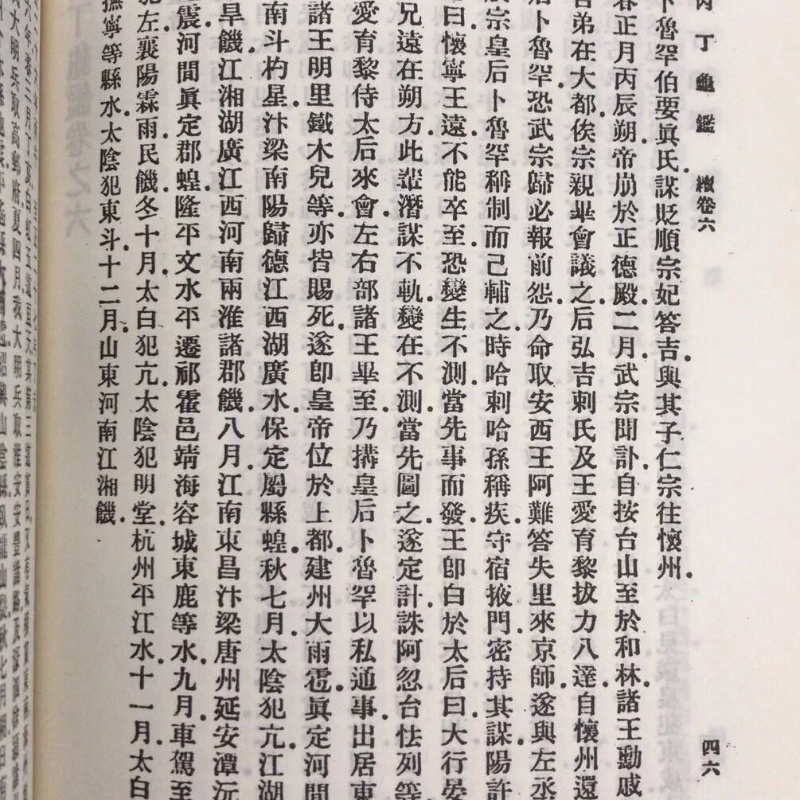 丙丁龜鑑　續卷六　四六
卜魯罕伯要眞氏謀貶順宗妃答吉。與其子仁宗往懷州。
春正月丙辰朔。帝崩於正德殿。二月。武宗聞訃。自按台山至於和林。諸王勳戚
皆弟在大都。俟宗親畢會議之。后弘吉剌氏及王愛育黎拔力八達自懷州還
后卜魯罕。恐武宗歸必報前怨。乃命取安西王阿難答失里來京師。遂與左丞
宗皇后卜魯罕稱制而己輔之。時哈剌哈孫稱疾。守宿掖門。密持其謀。陽許
曰。懷寧王遠。不能卒至。恐變生不測。當先事而發。王卽白於太后曰。大行晏
兄遠在朔方。此輩潛謀不軌。變在不測。當先圖之。遂定計。誅阿忽台怯列等
愛育黎侍太后來會。左右部諸王畢至。乃搆皇后卜魯罕以私通事。出居東
諸王明里鐵木兒等。亦皆賜死。遂卽皇帝位於上都。建州大雨雹。眞定河間
南斗杓星。汴梁南陽歸德江西湖廣水。保定屬縣蝗。秋七月。太陰犯亢。江湖
旱饑。江湘湖廣江西河南兩淮諸郡饑。八月。江南東昌汴梁唐州延安潭沅
震。河間眞定郡蝗。隆平文水平遷祁霍邑靖海容城東鹿等水。九月。車駕至
犯左。襄陽霖雨。民饑。冬十月。太白犯亢。太陰犯明堂。杭州平江水。十一月。太白
撫寧等縣水。太陰犯東斗。十二月。山東河南江湘饑。